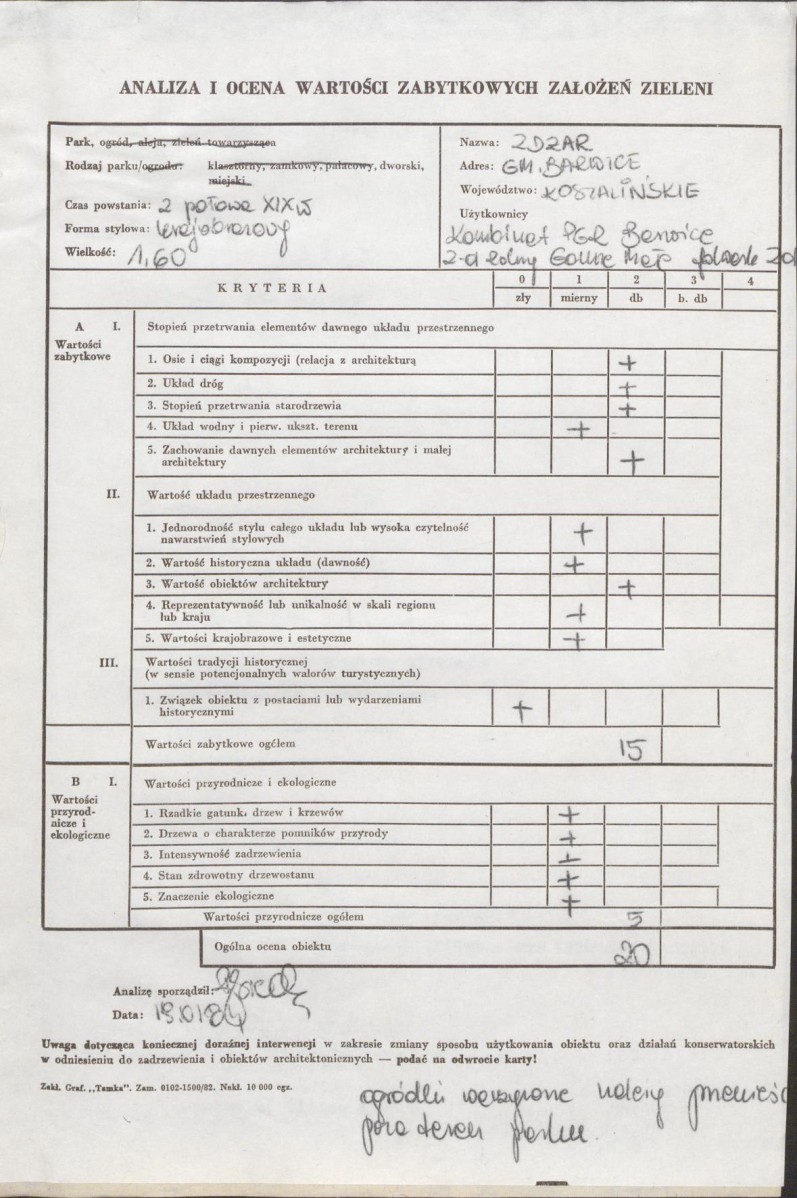 ANALIZA I OCENA WARTOŚCI ZABYTKOWYCH ZAŁOŻEŃ ZIELENI
Park, ogród, aleja, zieleń towarzysząca
Rodzaj parku/ogrodu: klasztorny, zamkowy, pałacowy, dworski,
miejski
Czas powstania: 2 połowa XIX w
Forma stylowa: krajobrazowy
Wielkość: 1,60
Nazwa: ZDZAR
Adres: GM. BARWICE
Województwo: KOSZALIŃSKIE
Użytkownicy
Kombinat PGR Barwice
2-d rolny
KRYTERIA
0 1 2 3 4
zły mierny db b. db
A I. Stopień przetrwania elementów dawnego układu przestrzennego
Wartości
zabytkowe
1. Osie i ciągi kompozycji (relacja z architekturą +
2. Układ dróg +
3. Stopień przetrwania starodrzewia +
4. Układ wodny i pierw. ukszt. terenu +
5. Zachowanie dawnych elementów architektury i małej
architektury +
II. Wartość układu przestrzennego
1. Jednorodność stylu całego układu lub wysoka czytelność
nawarstwień stylowych +
2. Wartość historyczna układu (dawność) +
3. Wartość obiektów architektury +
4. Reprezentatywność lub unikalność w skali regionu
lub kraju +
5. Wartości krajobrazowe i estetyczne +
III. Wartości tradycji historycznej
(w sensie potencjonalnych walorów turystycznych)
1. Związek obiektu z postaciami lub wydarzeniami
historycznymi +
Wartości zabytkowe ogółem 15
B I. Wartości przyrodnicze i ekologiczne
Wartości
przyrod-
nicze i
ekologiczne
1. Rzadkie gatunki drzew i krzewów +
2. Drzewa o charakterze pomników przyrody +
3. Intensywność zadrzewienia +
4. Stan zdrowotny drzewostanu +
5. Znaczenie ekologiczne +
Wartości przyrodnicze ogółem 5
Ogólna ocena obiektu 20
Analizę sporządził:
Data:
Uwaga dotycząca koniecznej doraźnej interwencji w zakresie zmiany sposobu użytkowania obiektu oraz działań konserwatorskich
w odniesieniu do zadrzewienia i obiektów architektonicznych — podać na odwrocie karty!
Zakł. Graf. „Tamka". Zam. 0102-1500/82. Nakł. 10 000 egz.
ogródki warzywne należy przenieść
poza teren parku.